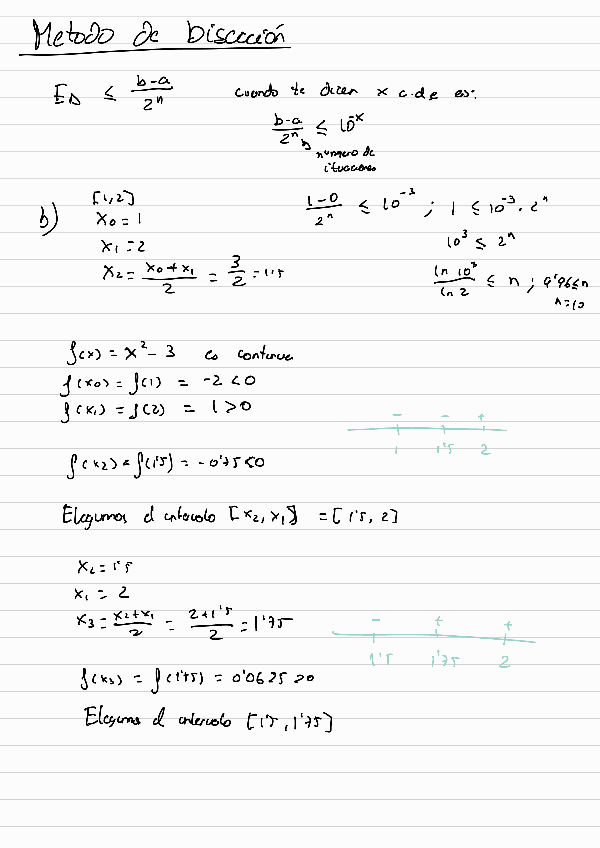 Metodo de Bisección
E_D ≤ (b-a)/2^n cuando te dicen x c.d.e es:
(b-a)/2^n ≤ 10^-x
numero de
ituaciones
b) [1,2]
x_0 = 1
x_1 = 2
x_2 = (x_0+x_1)/2 = 3/2 = 1'5
(1-0)/2^n ≤ 10^-3 ; 1 ≤ 10^-3 · 2^n
10^3 ≤ 2^n
(ln 10^3)/(ln 2) ≤ n ; 9'96 ≤ n
n=10
f(x) = x^2 - 3 es continua
f(x_0) = f(1) = -2 < 0
f(x_1) = f(2) = 1 > 0
- - +
1 1'5 2
f(x_2) = f(1'5) = -0'75 < 0
Elegimos el intervalo [x_2, x_1] = [1'5, 2]
x_2 = 1'5
x_1 = 2
x_3 = (x_2+x_1)/2 = (2+1'5)/2 = 1'75
- + +
1'5 1'75 2
f(x_3) = f(1'75) = 0'0625 > 0
Elegimos el intervalo [1'5, 1'75]